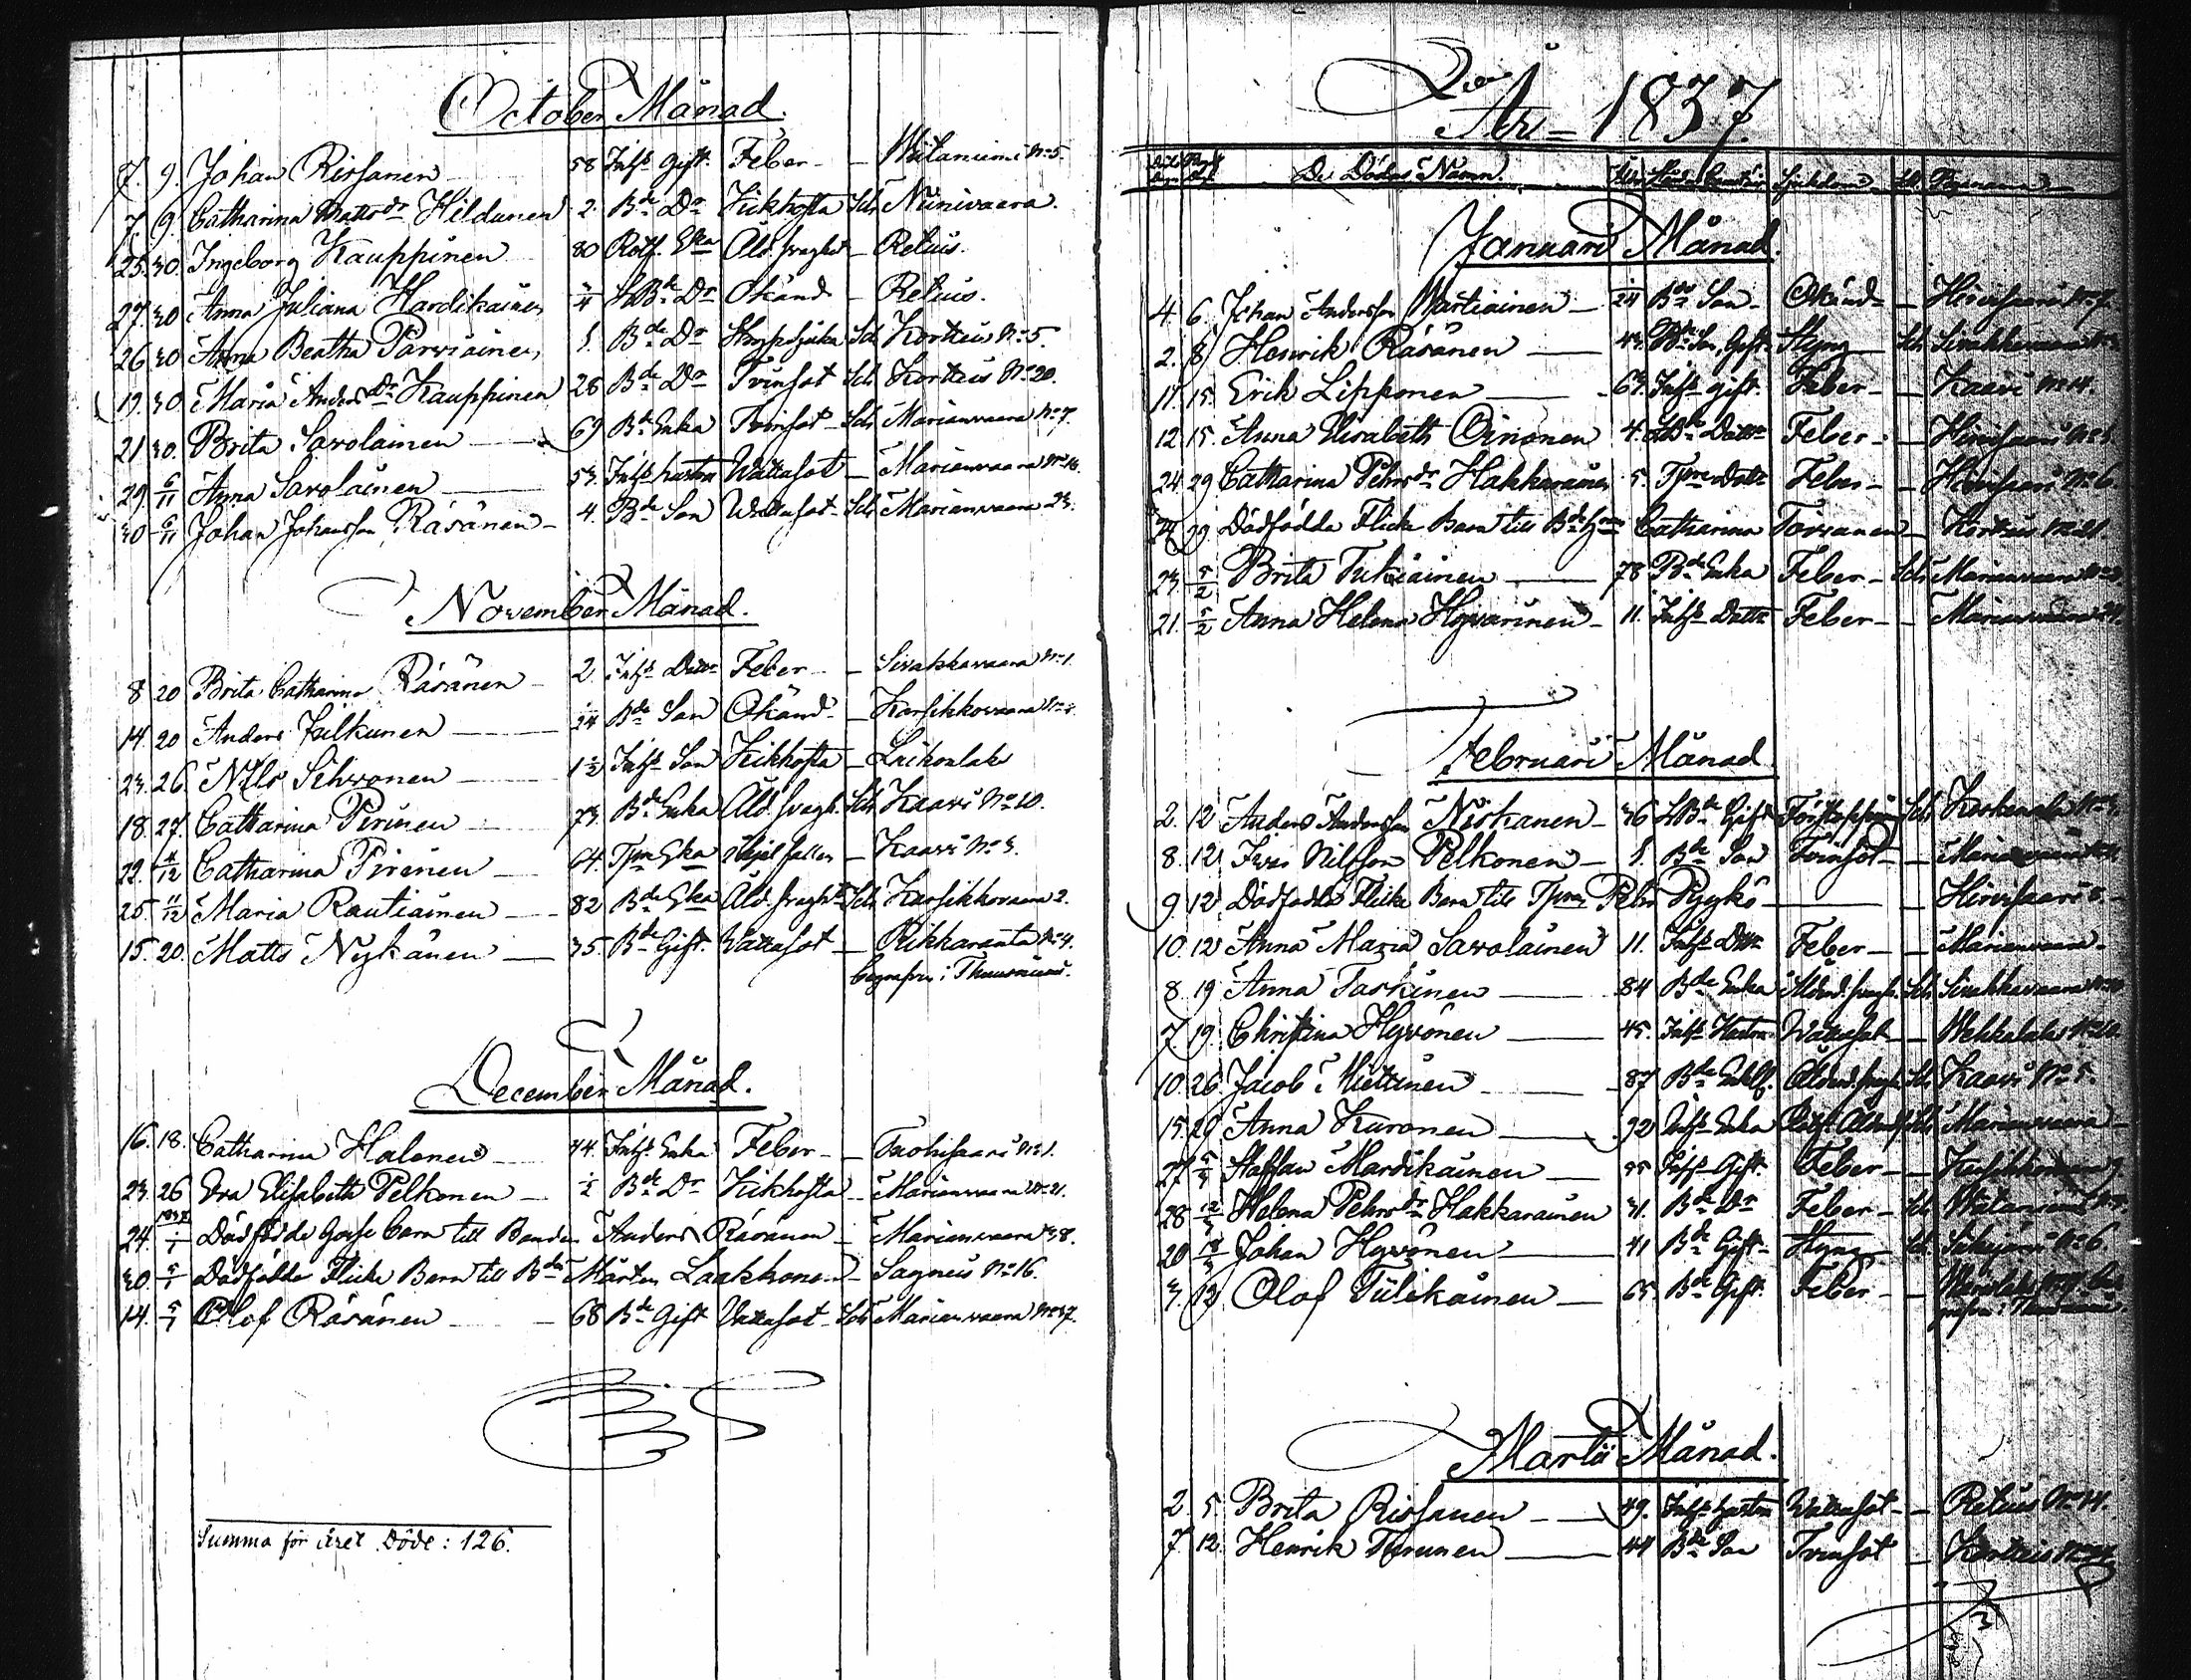 October Månad.
7. 9. Johan Rissanen 58 Inhs Gift. Feber - - No 5.
7. 9. Catharina Mattsdr Hildunen 2. Bde Dr Kikhosta Sch Niinivaara.
25. 30. Ingeborg Kauppinen 80 Rotf. Eka Ald. sraghet - Retuis.
27. 30 Anna Juliana Hardikainen LBde Dr Okänd - Retuis.
26 30 Anna Beatha Parviainen 1. Bde Dr Sch Korteis No 5.
19. 30. Maria Anders Dr Kauppinen 28 Bde Dr Tvinsot Sch Korteis No 20.
21 30. Brita Savolainen 69 Bde Enka Tvinsot Sch Marianvaara No 7.
29. 6/11 Anna Savolainen 53. Inhs hustru Wattusot - Marianvaara No 16.
30 6/11 Johan Johansson Räsänen - 4. Bde Son Wattusot - Sch Marianvaara 23.
November Månad.
8 20 Brita Catharina Räsänen - 2. Inhs Dotter Feber - Sivakkavaara No 1.
14. 20 Anders Julkunen 1/24 Bde Son Okänd - Karsikkovaara No
23. 26. Nils Sihvonen 1 1/2 Inhs Son Kikhosta - Luikonlaks
18. 27. Catharina Pirinen 73. Bde Enka Ald. sragh. Sch Kaavi No 10.
22. 4/12 Catharina Pirinen 64. Tjm Eka - Kaavi No 3.
25. 11/12 Maria Rautiainen 82 Bde Eka Ald. sraght Sch Karsikkovaara 2.
15. 20. Matts Nykänen 35. Bde Gift. Wattusot - Rikkaranta No 4.
begrafven i Thuusniemi.
December Månad.
16. 18. Catharina Halonen 44. Inhs Enka Feber - - No 1.
23. 26 Eva Elisabeth Pelkonen - 1/2 Bde Dr Kikhosta - Marianvaara No 21.
1837
24. 1/1 Dödfödde Gosse barn till Bonden Anders Räsänen - Marianvaara 38.
30. 5/1 Dödfödde Flicke Barn till Bden Mårten Laakkonen - Sagneis No 16.
14. 5/1 Olof Räsänen 68 Bde Gift Vattusot - Sch Marianvaara No 37.
Summa för året Döde: 126.
År 1837.
De Dödas Namn
Januarii Månad.
4. 6. Johan Andersson Martiainen - 1/24 Bde Son - Okänd - Hirvisaari No 7.
2. 8. Henrik Räsänen 43. Bde Son, Gift. Styng Sch Sivakkavaara
11. 15. Erik Lipponen 63. Inhs gift. Feber - - Kaavi No 14.
12. 15. Anna Elisabeth Oinonen 4. LBde Dotter Feber - - Hirvisaari No 3.
24. 29 Catharina Pehrsdr Hakkarainen 5. Dottr Feber - - Hirvisaari No 6.
29 Dödfödda Flicke Barn till Catharina Torvanen - Korteis No 21.
23. 5/2 Brita Tukiainen 78 Bde Enka Feber - Sch Marianvaara
21. 5/2 Anna Helena Hyvarinen - 11. Inhs Dottr Feber - - Marianvaara 24.
Februarii Månad
2. 12 Anders Andersson Niskanen - 36 LBde Gift Sch
8. 12 Ivar Nilsson Pelkonen - 1. Bde Son Tvinsot - - Marianvaara
9. 12 Dödfödde Flicke Barn till Pehr Pyykö - Hirvisaari 8.
10. 12 Anna Maria Savolainen 11. Inhs Dottr Feber - - Marianvaara
8. 19 Anna Taskinen 84 Bde Enka Sch Sivakkavaara
7. 19. Christina Hyvönen 45. Inhs Hustru Wattusot - Wehkalaks
10. 26. Jacob Miettinen 87 Bde Enkl. Sch Kaavi No 5.
15. 29 Anna Karonen 92 Inhs Enka Marianvaara
27 Staffan Mardikainen Inhs Gift. Feber - - 9
28 12/3 Helena Pehrsdr Hakkarainen 31. Bde Dr Feber - Sch
20 Johan Hyvönen 41 Bde Gift - Styng Sch No 6.
3. 12 Olof Tulikainen 65. Bde Gift. Feber -
Martii Månad.
2. 5. Brita Rissanen 49. Inhs hustru Wattusot - - Retuis No 14.
7. 12. Henrik Turunen 44 Bde Son Tvinsot - Korteis